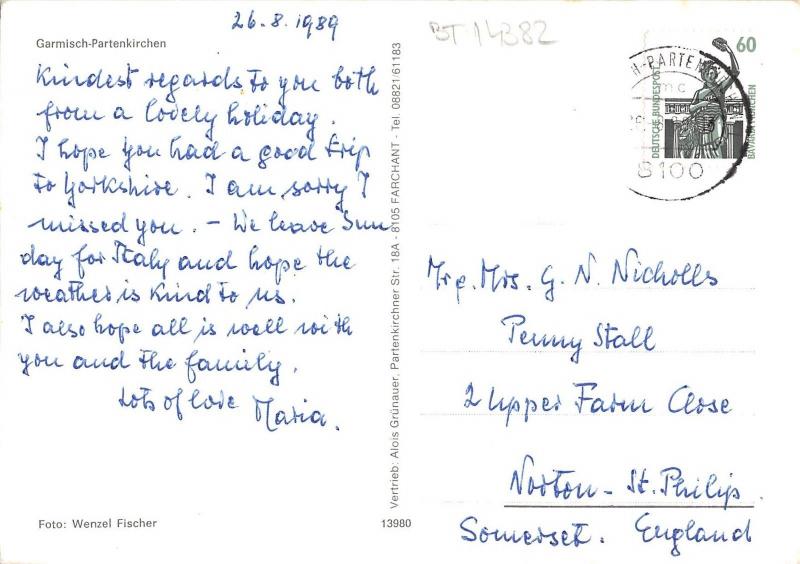 26.8.1989
BT 14382
Garmisch-Partenkirchen
Kindest regards to you both
from a lovely holiday.
I hope you had a good trip
to Yorkshire. I am sorry I
missed you. – We leave Sun
day for Italy and hope the
weather is kind to us.
I also hope all is well with
you and the family.
Lots of love Maria.
Foto: Wenzel Fischer
13980
Vertrieb: Alois Grünauer, Partenkirchner Str. 18A - 8105 FARCHANT - Tel. 08821/61183
60
DEUTSCHE BUNDESPOST
H-PARTEN
mc
8100
Mr e. Mrs. G. N. Nicholls
Penny Stall
2 Upper Farm Close
Norton - St. Philip
Somerset. England